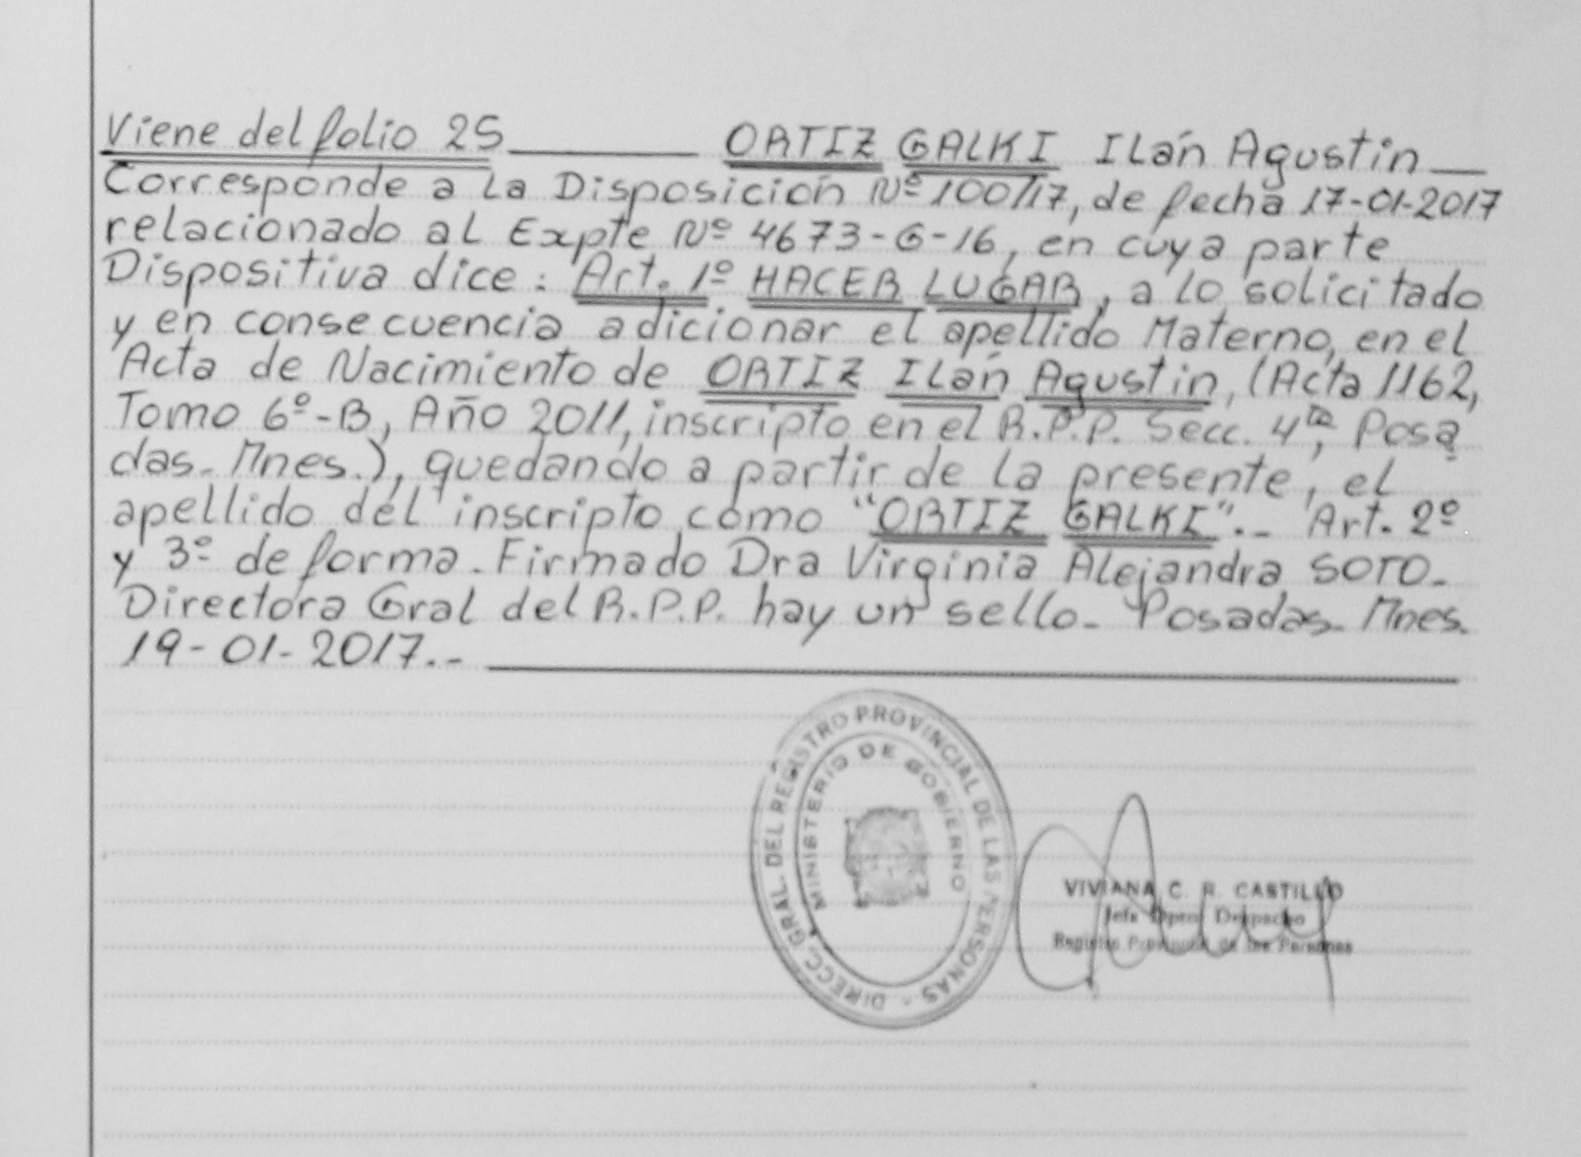 Viene del folio 25 ORTIZ GALKI Ilán Agustín
Corresponde a la Disposición Nº 100/17, de fecha 17-01-2017
relacionado al Expte Nº 4673-G-16, en cuya parte
Dispositiva dice: Art. 1º HACER LUGAR, a lo solicitado
y en consecuencia adicionar el apellido Materno, en el
Acta de Nacimiento de ORTIZ Ilán Agustín, (Acta 1162,
Tomo 6º-B, Año 2011, inscripto en el R.P.P. Secc. 4ta, Posa
das- Mnes.), quedando a partir de la presente, el
apellido del inscripto como "ORTIZ GALKI".- Art. 2º
y 3º de forma. Firmado Dra Virginia Alejandra SOTO-
Directora Gral del R.P.P. hay un sello- Posadas- Mnes.
19-01-2017.-
DIRECC. GRAL. DEL REGISTRO PROVINCIAL DE LAS PERSONAS
MINISTERIO DE GOBIERNO
VIVIANA C. R. CASTILLO
Jefe Dpto Despacho
Registro Provincial de las Personas